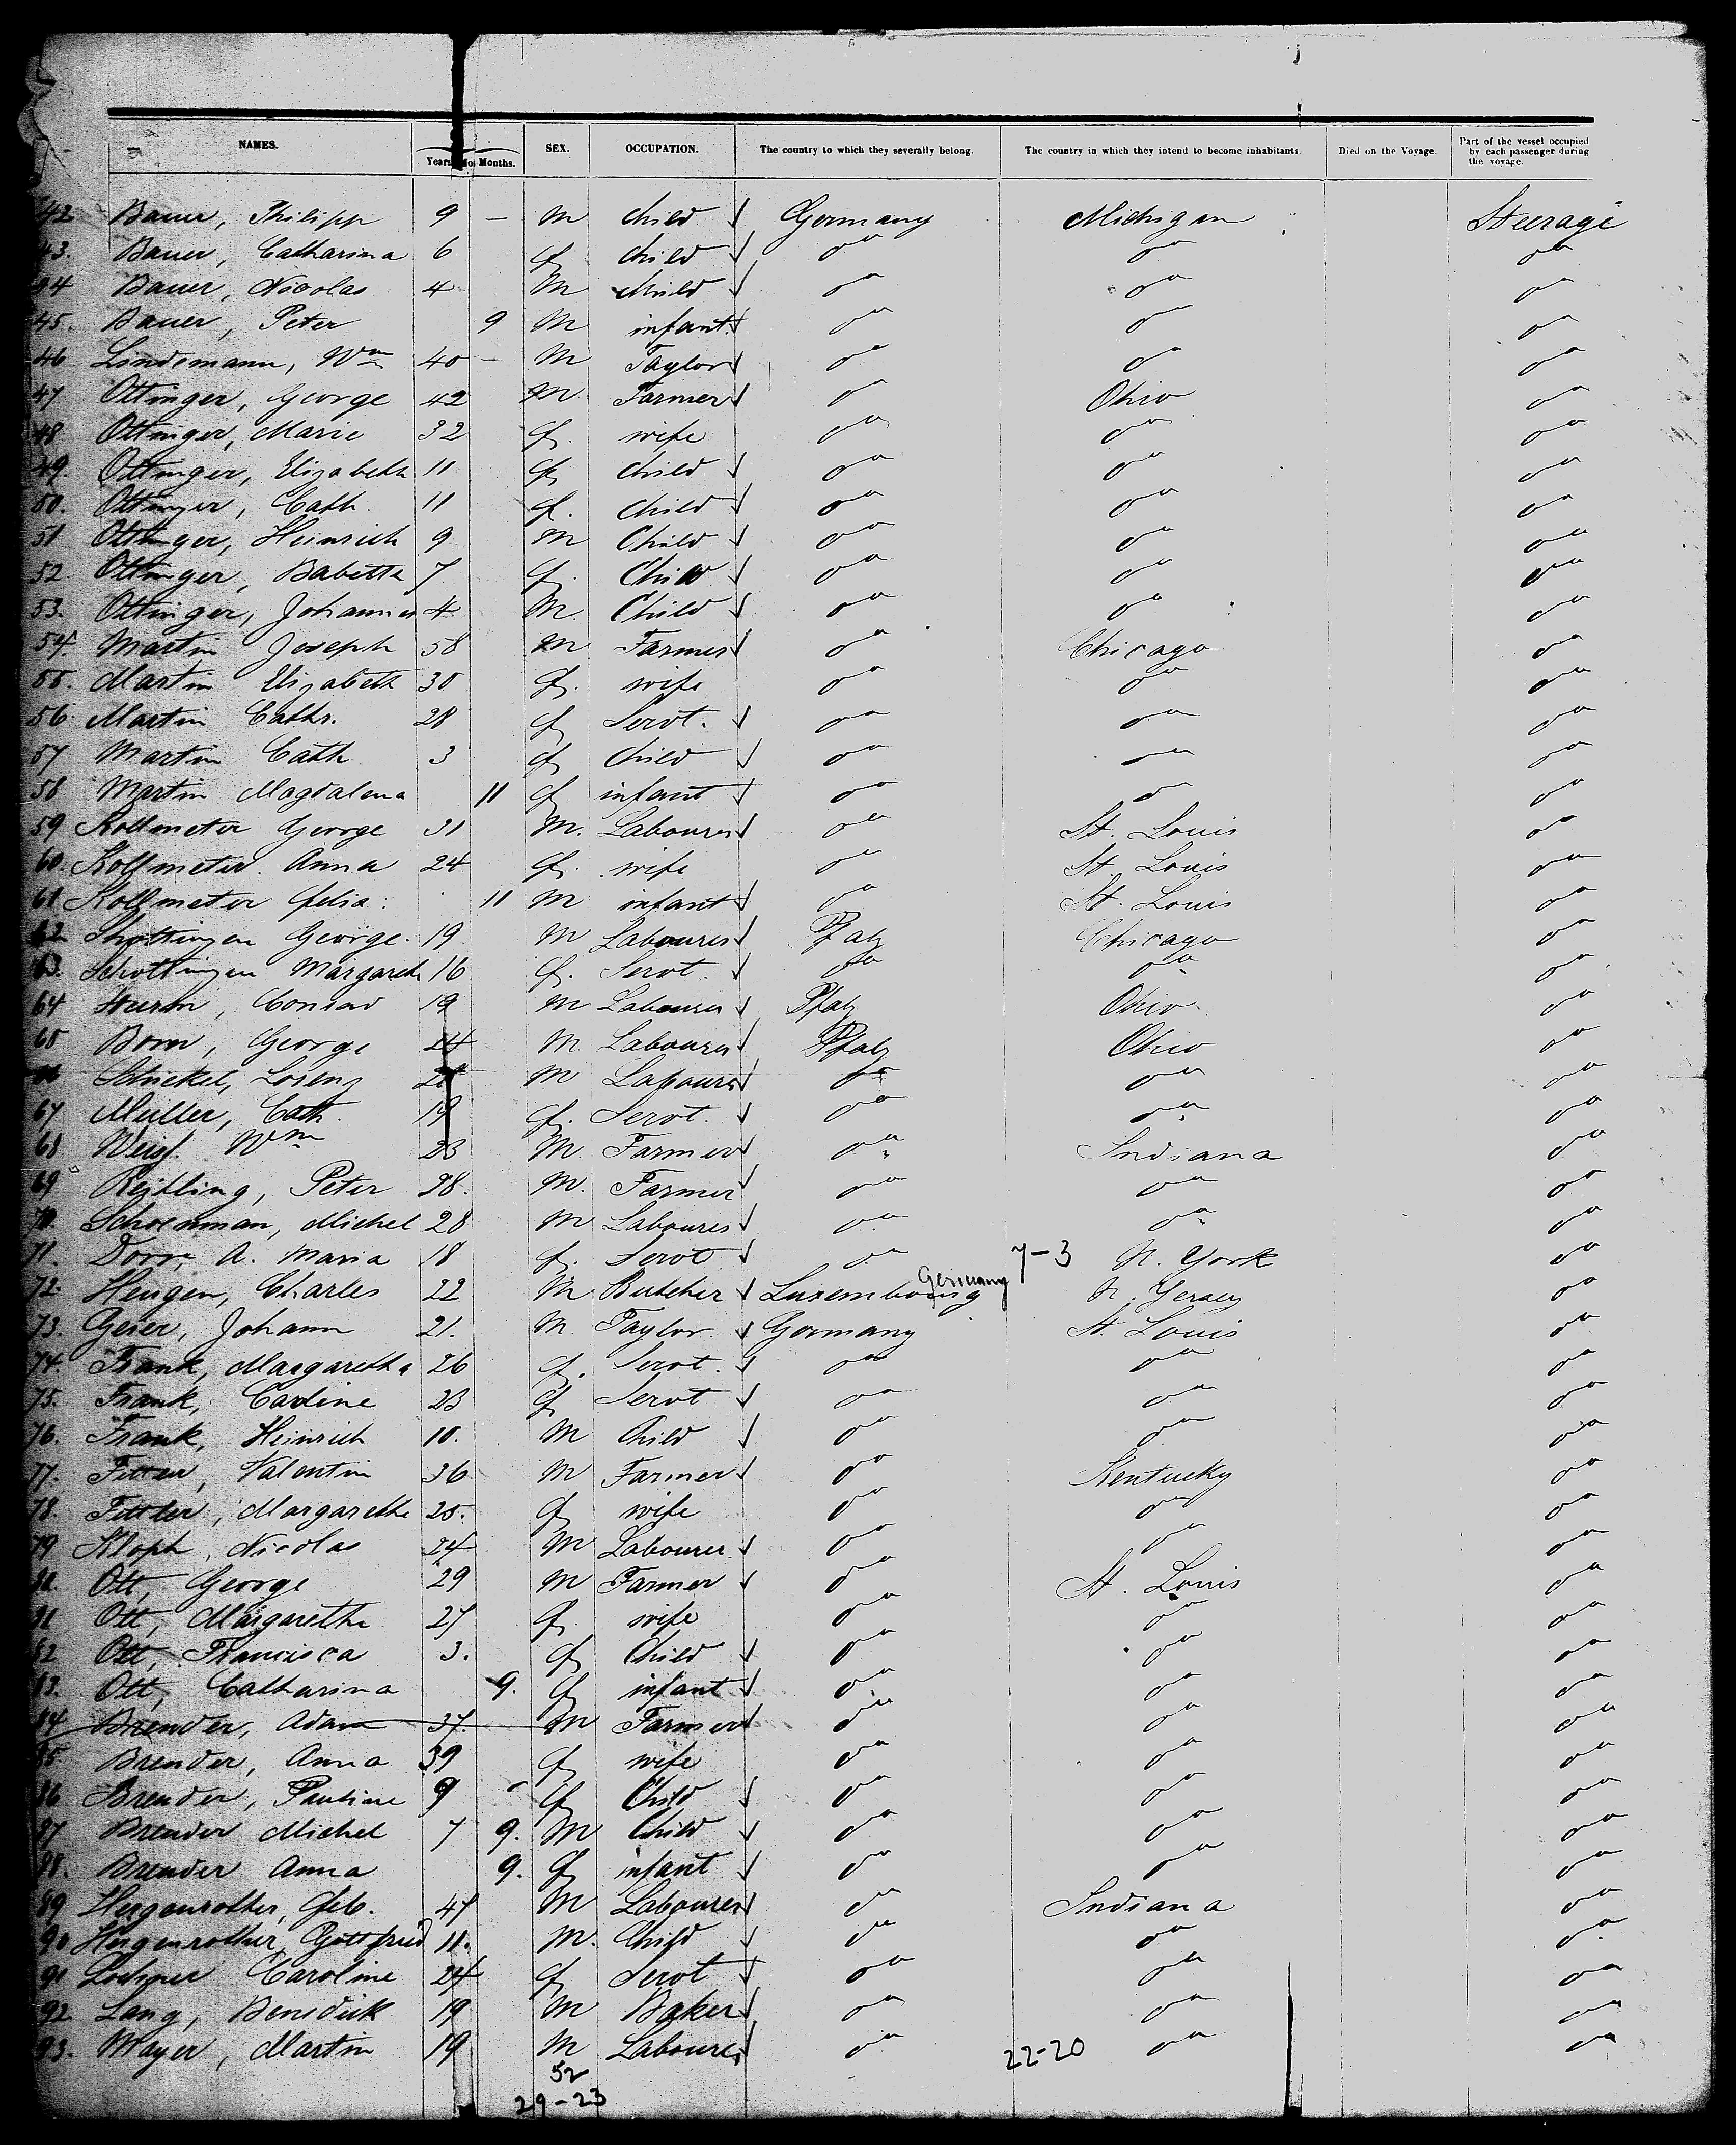 NAMES. Years. Months. SEX. OCCUPATION. The country to which they severally belong. The country in which they intend to become inhabitants. Died on the Voyage. Part of the vessel occupied by each passenger during the voyage.
42 Bauer, Philipp 9 — M child Germany Michigan Steerage
43. Bauer, Catharina 6 f child do do do
44 Bauer, Nicolas 4 M child do do do
45. Bauer, Peter 9 M infant do do do
46 Lindemann, Wm 40 — M Taylor do do do
47 Ottinger, George 42 M Farmer do Ohio do
48 Ottinger, Marie 32 f. wife do do do
49. Ottinger, Elizabeth 11 f child do do do
50. Ottinger, Cath. 11 f. Child do do do
51 Ottinger, Heinrich 9 M Child do do do
52. Ottinger, Babetta 7 f. Child do do do
53. Ottinger, Johannes 4 M. Child do do do
54. Martin Joseph 58 M Farmer do Chicago do
55. Martin Elizabeth 30 f. wife do do do
56. Martin Cathr. 28 f Servt. do do do
57 Martin Cath 3 f Child do do do
58 Martin Magdalena 11 f infant do do do
59 Kollmeter George 31 M. Labourer do St. Louis do
60. Kollmeter. Anna 24 f. wife do St. Louis do
61 Kollmeter 11 M infant do St. Louis do
62 George. 19 M Labourer Pfalz Chicago do
63. Schottingen Margareth 16 f. Servt. do do do
64 Sturm, Conrad 19 M Labourer Pfalz Ohio do
65 Born, George 24 M Labourer Pfalz Ohio do
Schickel, Lorenz M Labourer do do do
67 Muller, Cath. 19 f. Servt. do do do
68 Weiss Wm 23 M Farmer do Indiana do
69 Peter 28. M. Farmer do do do
70. Schoenman, Michel 28 M Labourer do do do
71. Dorr, A. Maria 18 f. Servt do 7-3 N. York do
72. Hengen, Charles 22 M Butcher Luxembourg Germany N. Jersey do
73. Geier, Johann 21. M Taylor. Germany St. Louis do
74. Frank, Margaretha 26 f. Servt. do do do
75. Frank, Carline 23 f Servt do do do
76. Frank, Heinrich 10. M Child do do do
77. Fetter, Valentin 36 M Farmer do Kentucky do
78. Fetter, Margarethe 25. f wife do do do
79 Kloph, Nicolas 24 M Labourer do do do
80. Ott, George 29 M Farmer do St. Louis do
81 Ott, Margarethe 27 f. wife do do do
82 Ott, Francisca 3. f Child do do do
83. Ott, Catharina 9. f infant do do do
84 Brender, Adam 37 M Farmer do do do
85. Brender, Anna 39 f wife do do do
86 Brender, Pauline 9 f Child do do do
87 Brender Michel 7 9. M Child do do do
88. Brender Anna 9. f infant do do do
89 Hergenrother, Geb. 47 M Labourer do Indiana do
90 Hergenrother, Gottfried 11. M. Child do do do
91 Caroline 24 f Servt do do do
92 Lang, Benedick 19 M Baker do do do
93. Mayer, Martin 19 M Labourer do 22-20 do do
52
29-23